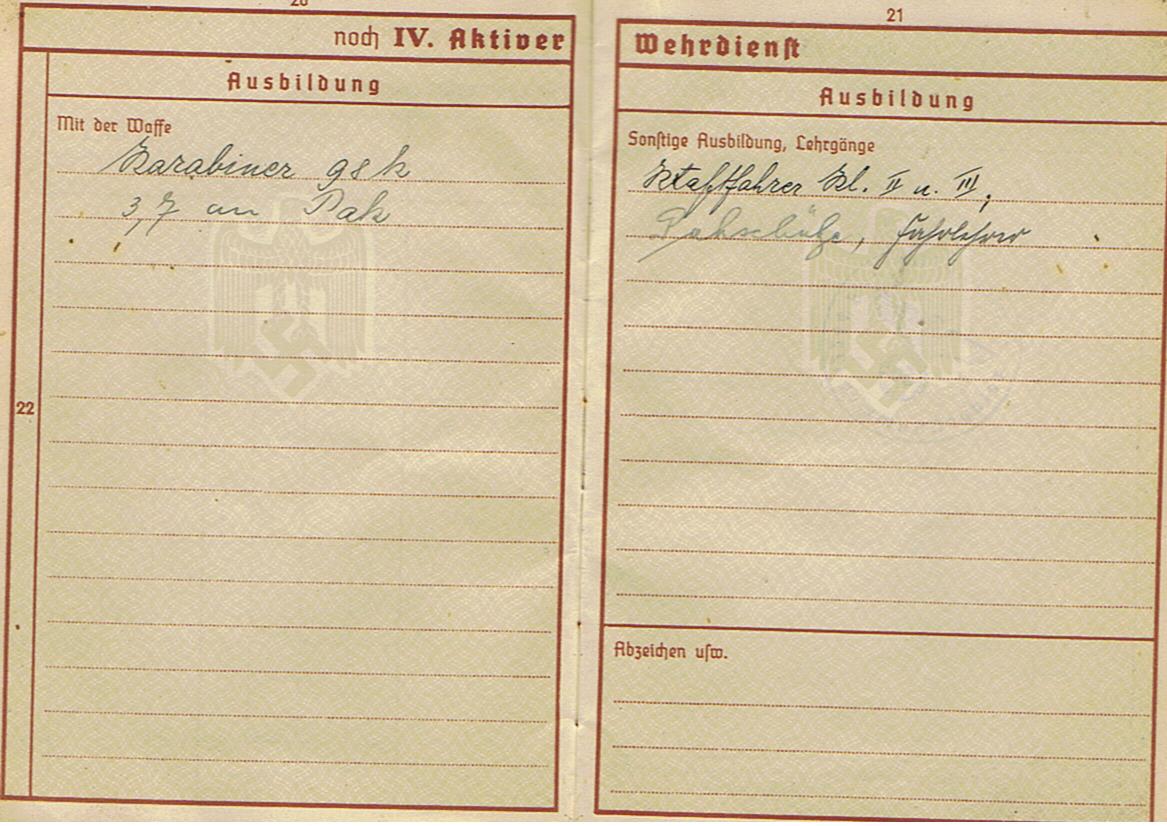 20
noch IV. Aktiver
Ausbildung
Mit der Waffe
Karabiner 98 k
3,7 cm Pak
22
21
Wehrdienst
Ausbildung
Sonstige Ausbildung, Lehrgänge
Kraftfahrer Kl. II u. III,
Pakschütze, Fahrlehrer
Abzeichen usw.